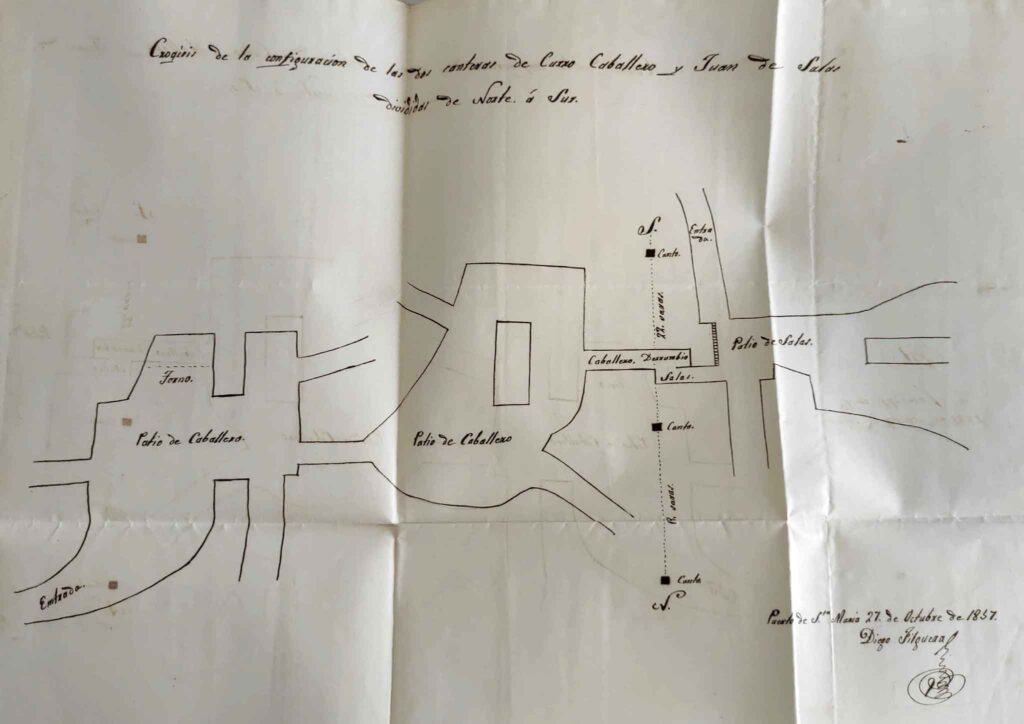 Croqisis de la configuracion de las dos canteras de Curro Caballero y Juan de Salas
divididas de Norte á Sur.
S.
Canto.
Entra
da.
22. varas.
Patio de Salas.
Caballero. Derrumbio
Salas.
Torno.
Patio de Caballero.
Patio de Caballero
Canto.
varas.
Canto
N.
Entrada.
Puerto de S.ta Maria 27. de Octubre de 1857.
Diego Filguera